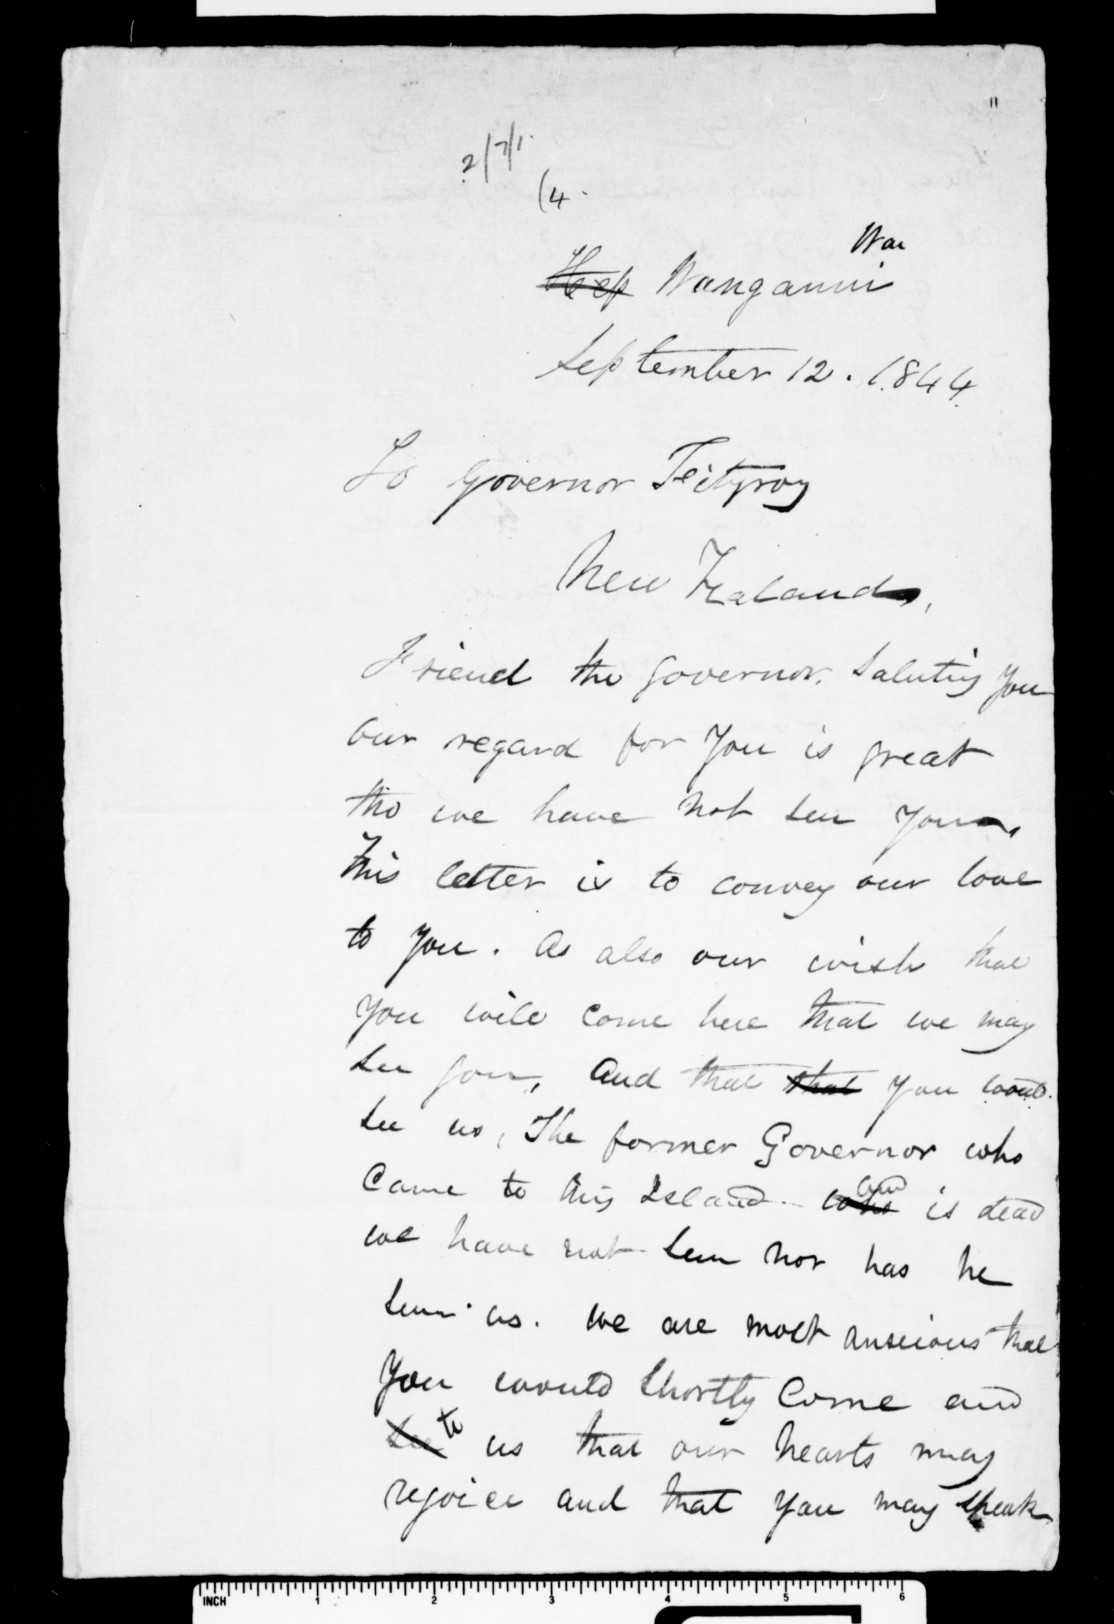 "
2/7/1.
(4.
War
Hep Wanganui
September 12. 1844.
To Governor Feitzroy
New Zealand,
Friend the Governor. Saluting you
our regard for You is great
tho we have not seen you,
This letter is to convey our love
to you. As also our wish that
you will come here that we may
see you, And that that you would
see us, The former Governor who
Came to this Island who and is dead
we have not seen nor has he
seen us. we are most anxious that
You would shortly Come and
see to us that our hearts may
rejoice and that you may speak
INCH 1 2 3 4 5 6